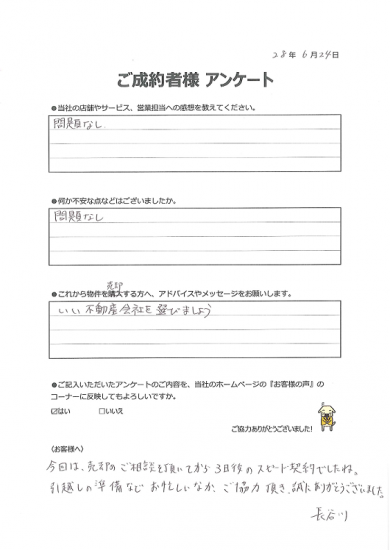 28年 6月24日
ご成約者様 アンケート
●当社の店舗やサービス、営業担当への感想を教えてください。
問題なし
●何か不安な点などはございましたか。
問題なし
売却
●これから物件を購入する方へ、アドバイスやメッセージをお願いします。
いい不動産会社を選びましょう
●ご記入いただいたアンケートのご内容を、当社のホームページの『お客様の声』の
コーナーに反映してもよろしいですか。
☑はい □いいえ
ご協力ありがとうございました!
〈お客様へ〉
今回は、売却のご相談を頂いてから3日後のスピード契約でしたね。
引越しの準備などお忙しいなか、ご協力頂き、誠にありがとうございました。
長谷川